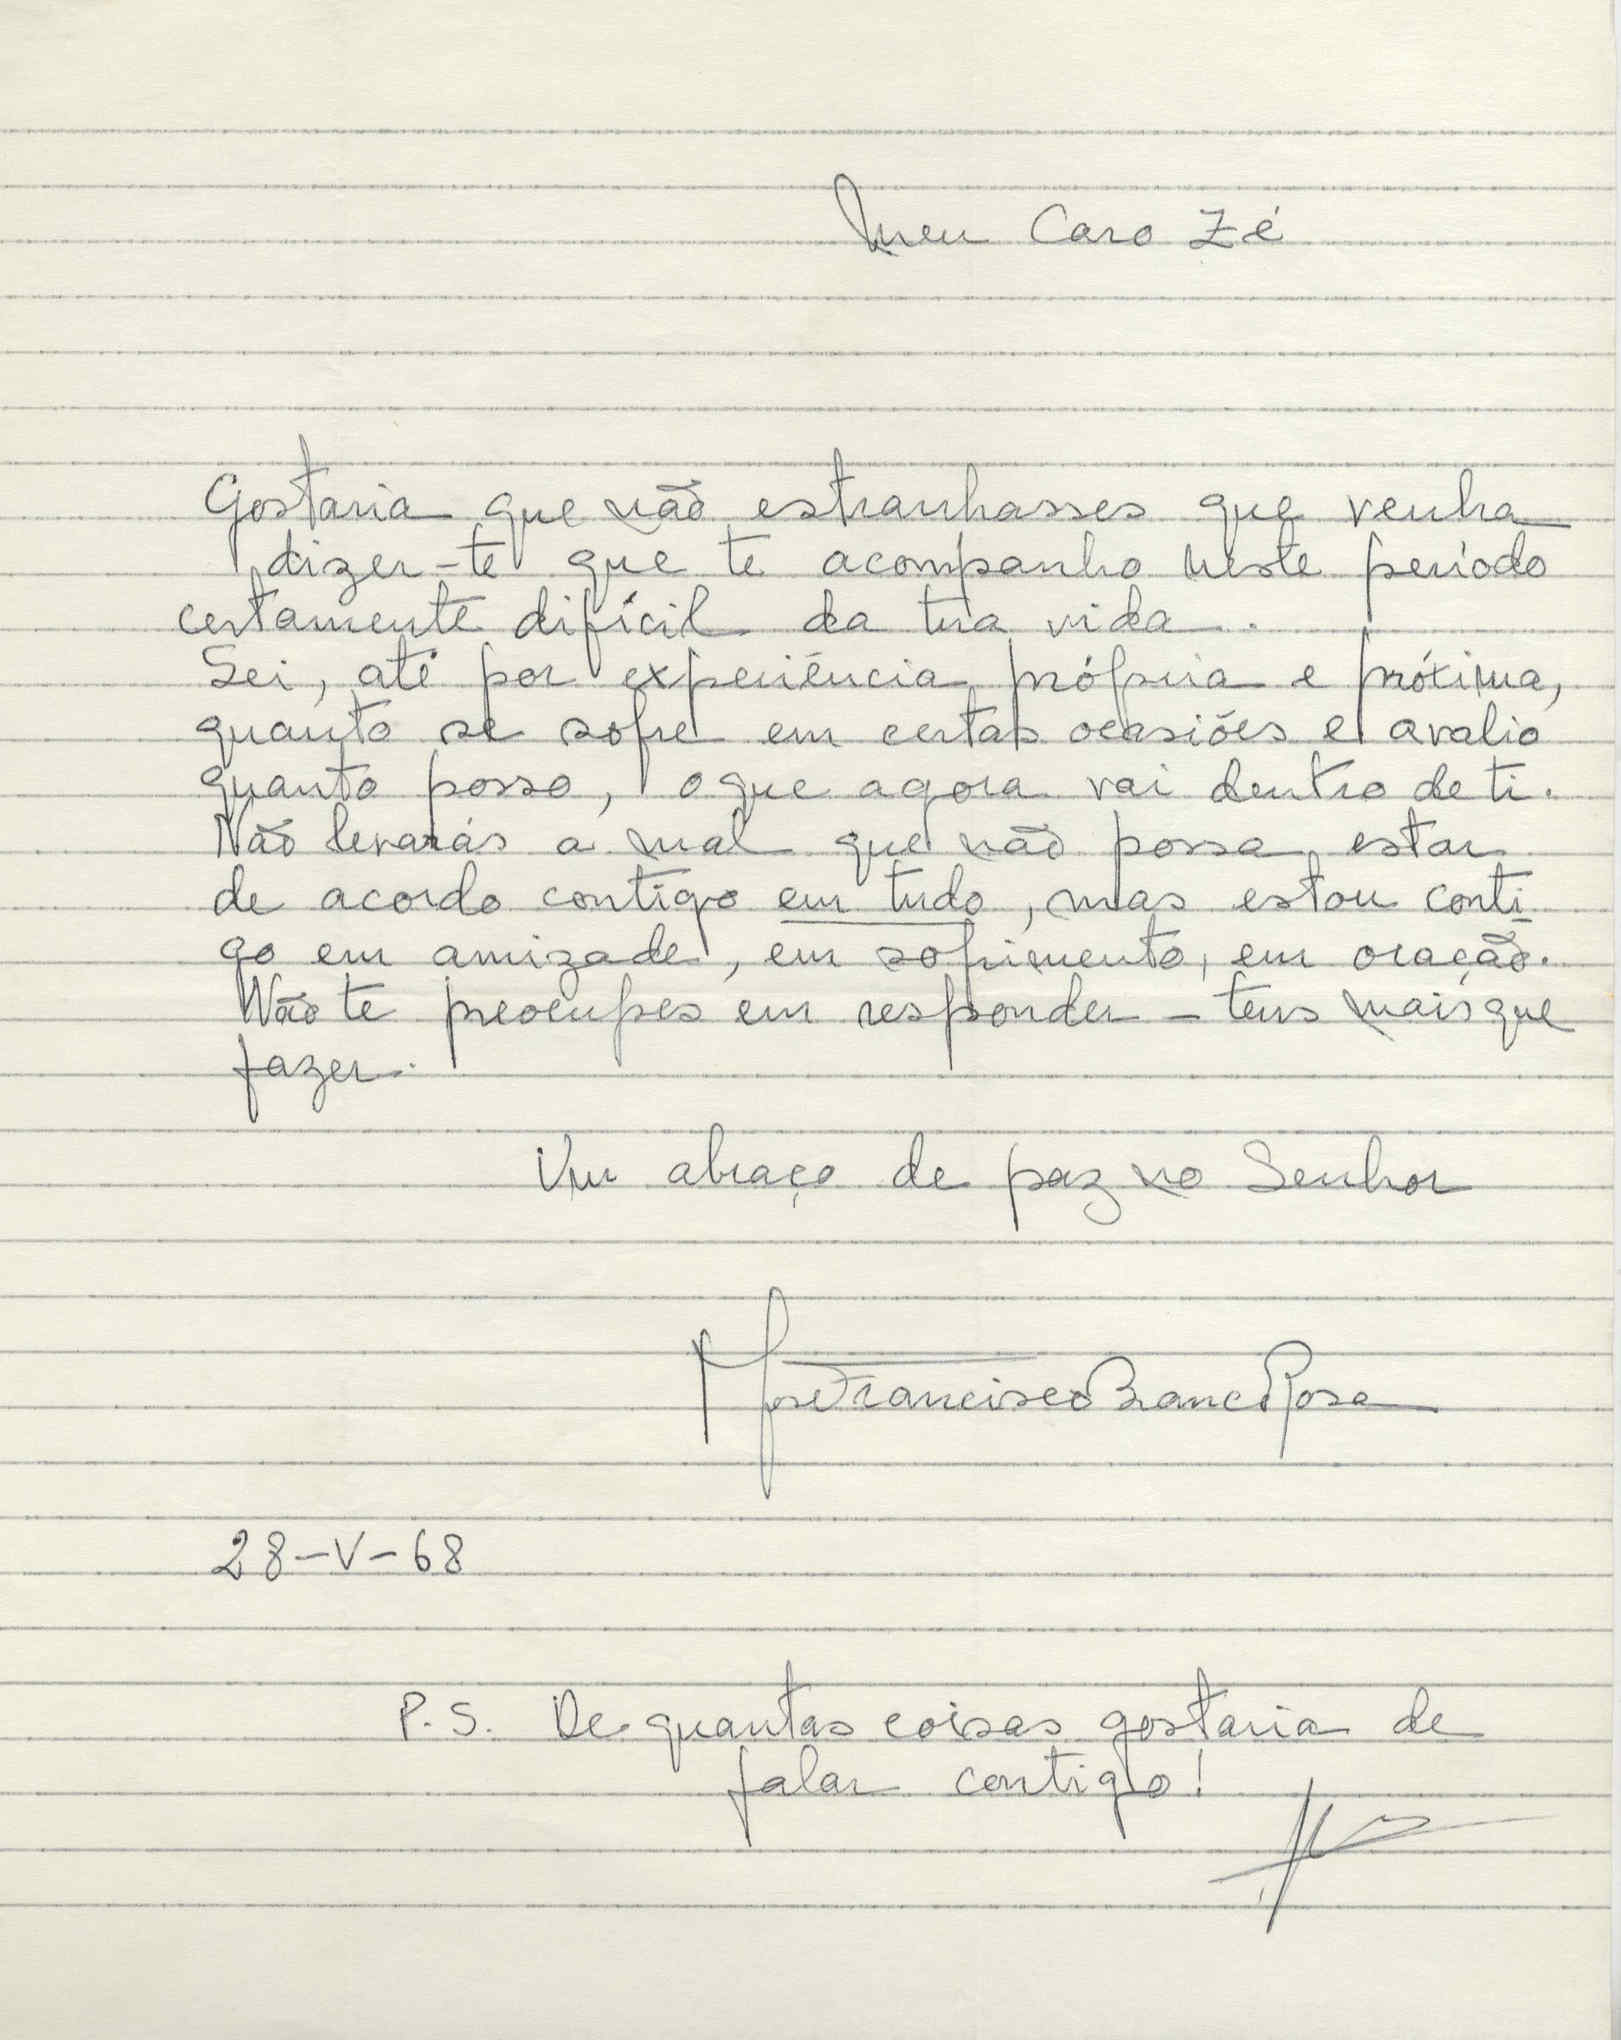 Meu Caro Zé
Gostaria que não estranhasses que venha
dizer-te que te acompanho neste período
certamente difícil da tua vida.
Sei, até por experiência própria e próxima,
quanto se sofre em certas ocasiões e avalio
quanto posso, o que agora vai dentro de ti.
Não levarás a mal que não possa estar
de acordo contigo em tudo, mas estou conti
go em amizade, em sofrimento, em oração.
Não te preocupes em responder – tens mais que
fazer.
Um abraço de paz no Senhor
José Francisco Branco Rosa
28-V-68
P.S. De quantas coisas gostaria de
falar contigo!